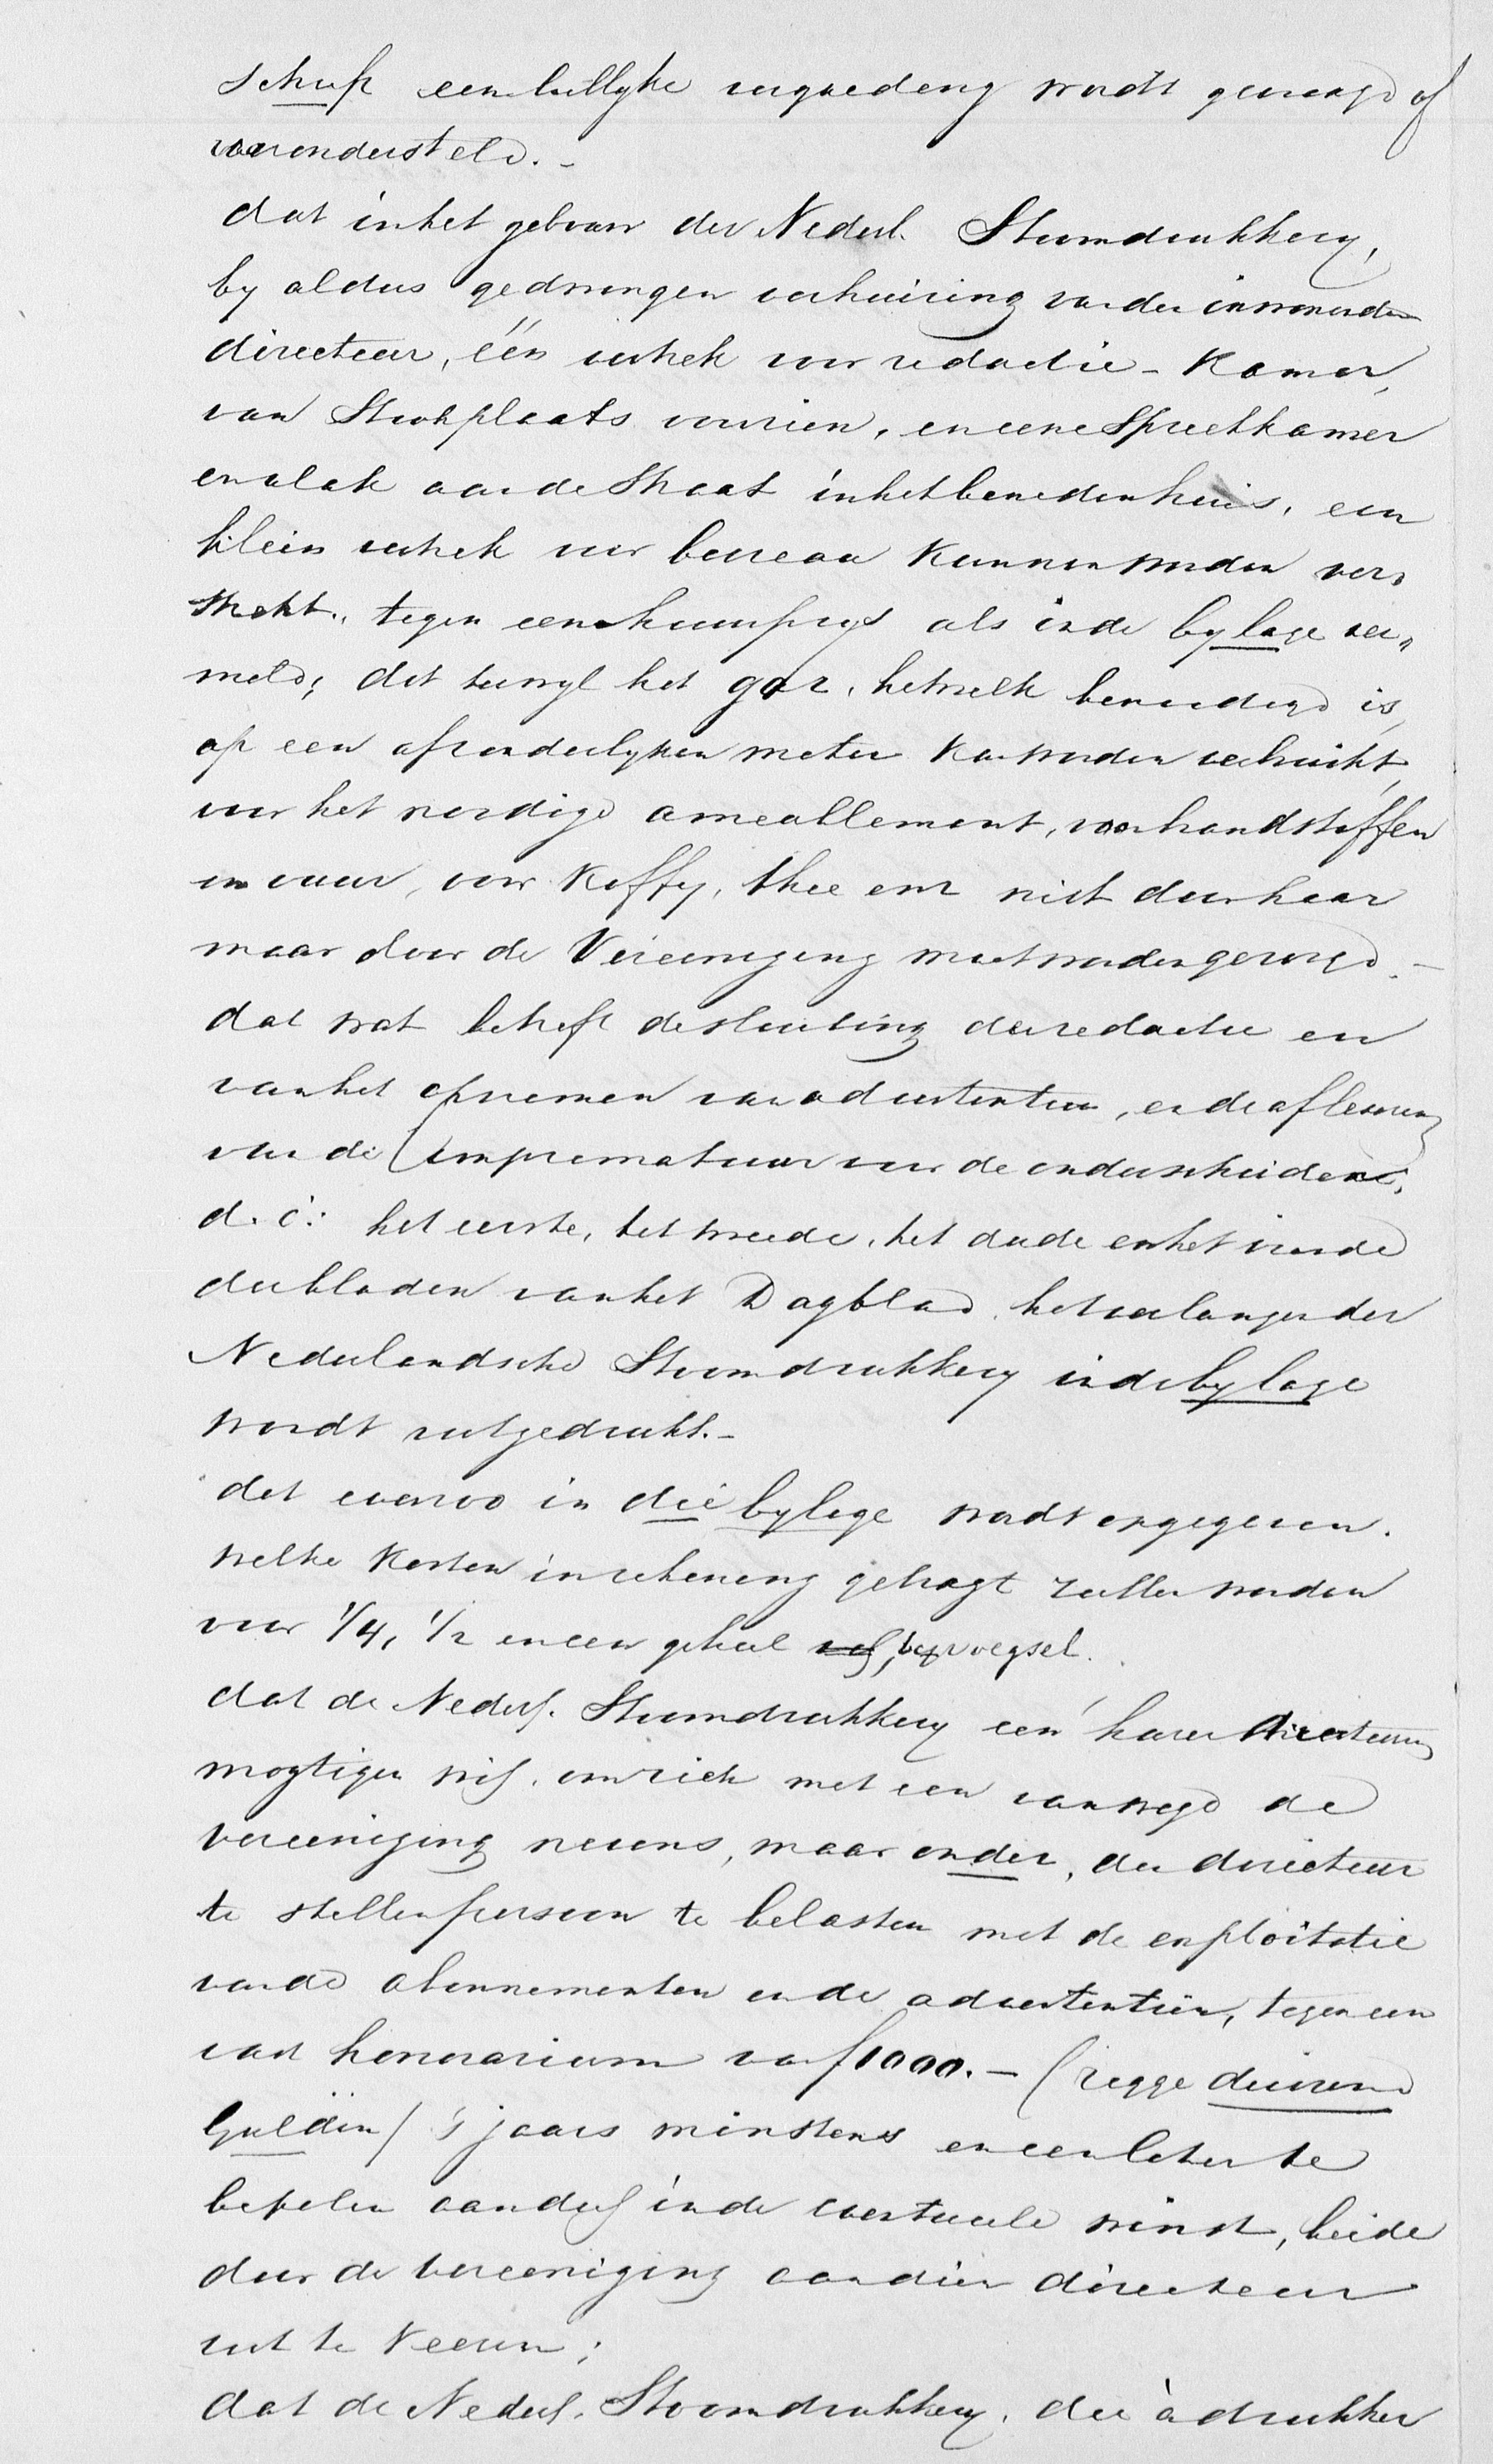 schrift een billyke vergoeding wordt gevraagd of
verondersteld. -
dat in het gebouw der Nederl. Stoomdrukkery,
by aldus gedwongen verhuizing van den inwonenden
directeur, één vertrek voor redactie - Kamer,
van Stookplaats voorzien, en eene Spreekkamer
en vlak aan de Straat in het benedenhuis, een
klein vertrek voor bureau kunnen worden ver-
strekt, tegen een huurprys als in de bylage ver-
meld; dit terwyl het gaz, hetwelk benoodigd is,
op een afzonderlyken meter kan worden verbruikt,
voor het noodige ameublement, voor brandstoffen
en vuur, voor Koffy, thee enz niet door haar
maar door de Vereeniging moet worden gezorgd. -
dat wat betreft de sluiting der redactie en
van het opnemen van advertentien, en de aflevering
van de imprematuur voor de onderscheidene,
d. i: het eerste, het tweede, het derde en het vierde
der bladen van het Dagblad, het verlangen der
Nederlandsche Stoomdrukkery in de bylage
wordt uitgedrukt. -
dat evenzoo in die bylage wordt opgegeven.
welke Kosten in rekening gebragt zullen worden
voor 1/4, 1/2 en een geheel byvoegsel.
dat de Nederl. Stoomdrukkery een harer Directeuren
magtigen wil, om zich met een vanwege de
vereeniging nevens, maar onder, den directeur
te stellen persoon te belasten met de exploitatie
van de abonnementen en de advertentiën, tegen een
vast honorarium van f 1000. - (zegge duizend
Gulden) 's jaars minstens en een later te
bepalen aandeel in de eventueele winst, beide
door de vereeniging aan dien directeur
uit te keeren;
dat de Nederl. Stoomdrukkery, die à drukker